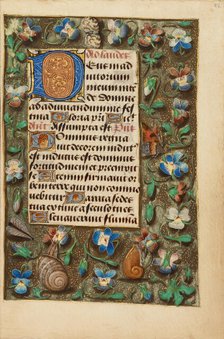 Ad laudes
Deus in ad
iutorium
meum inten
de Domine
ad adiuuandum me festi
na Gloria
Assumpta est
Dominus regna
uit decorem indutus est
indutus est dominus forti
tudinem et precinxit se
Etenim firmauit orbem
terre qui non commo
uebitur Parata sedes
tua ex tunc a seculo tu es
Eleuauerunt flumina